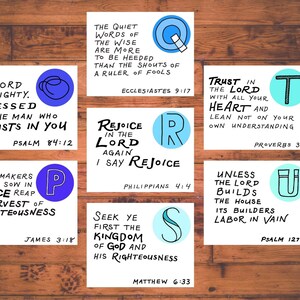 THE QUIET
WORDS OF
THE WISE
ARE MORE
TO BE HEEDED
THAN THE SHOUTS OF
A RULER OF FOOLS
ECCLESIASTES 9:17
Q
ORD
GHTY,
ESSED
HE MAN WHO
STS IN YOU
PSALM 84:12
REJOICE
IN THE
LORD
AGAIN
I SAY REJOICE
PHILIPPIANS 4:4
R
TRUST IN
THE LORD
WITH ALL YOUR
HEART AND
LEAN NOT ON YOUR
OWN UNDERSTANDING
PROVERBS 3
T
MAKERS
SOW IN
CE REAP
RVEST OF
TEOUSNESS
JAMES 3:18
P
SEEK YE
FIRST THE
KINGDOM
OF GOD AND
HIS RIGHTEOUSNESS
MATTHEW 6:33
S
UNLESS
THE LORD
BUILDS
THE HOUSE
ITS BUILDERS
LABOR IN VAIN
PSALM 127
U